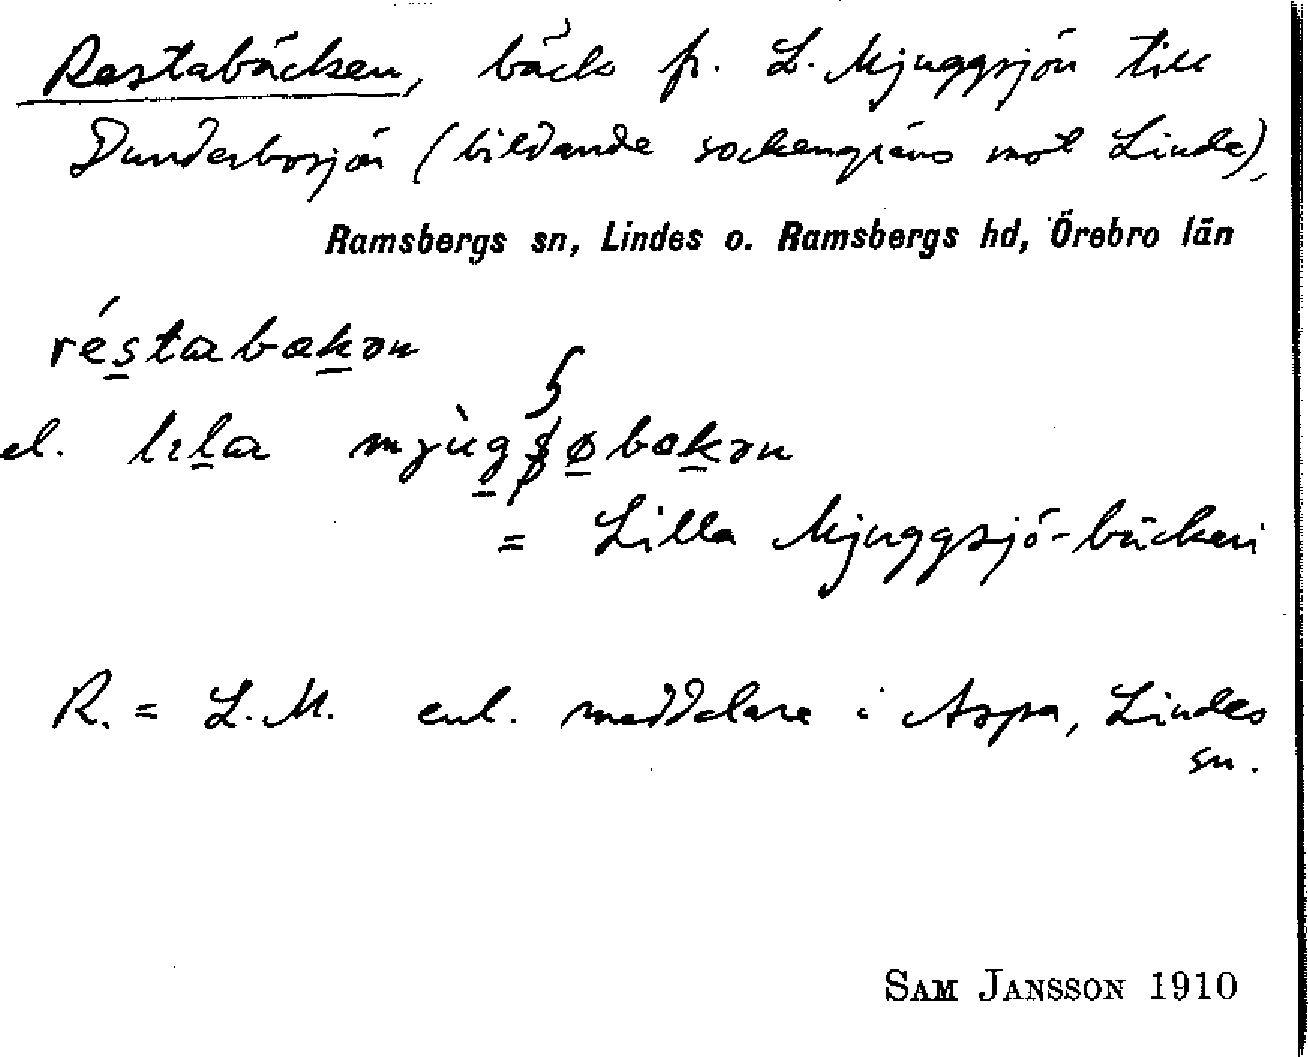 Restabäcken, bäck fr. L. Mjuggsjön till
Dunderbosjön (bildande sockengräns mot Linde),
Ramsbergs sn, Lindes o. Ramsbergs hd, Örebro län
réstabækən
el. lɪla mjùgʃøbækən
= Lilla Mjuggsjö-bäcken
R. = L.M. enl. meddelare i Aspa, Lindes
sn.
SAM JANSSON 1910